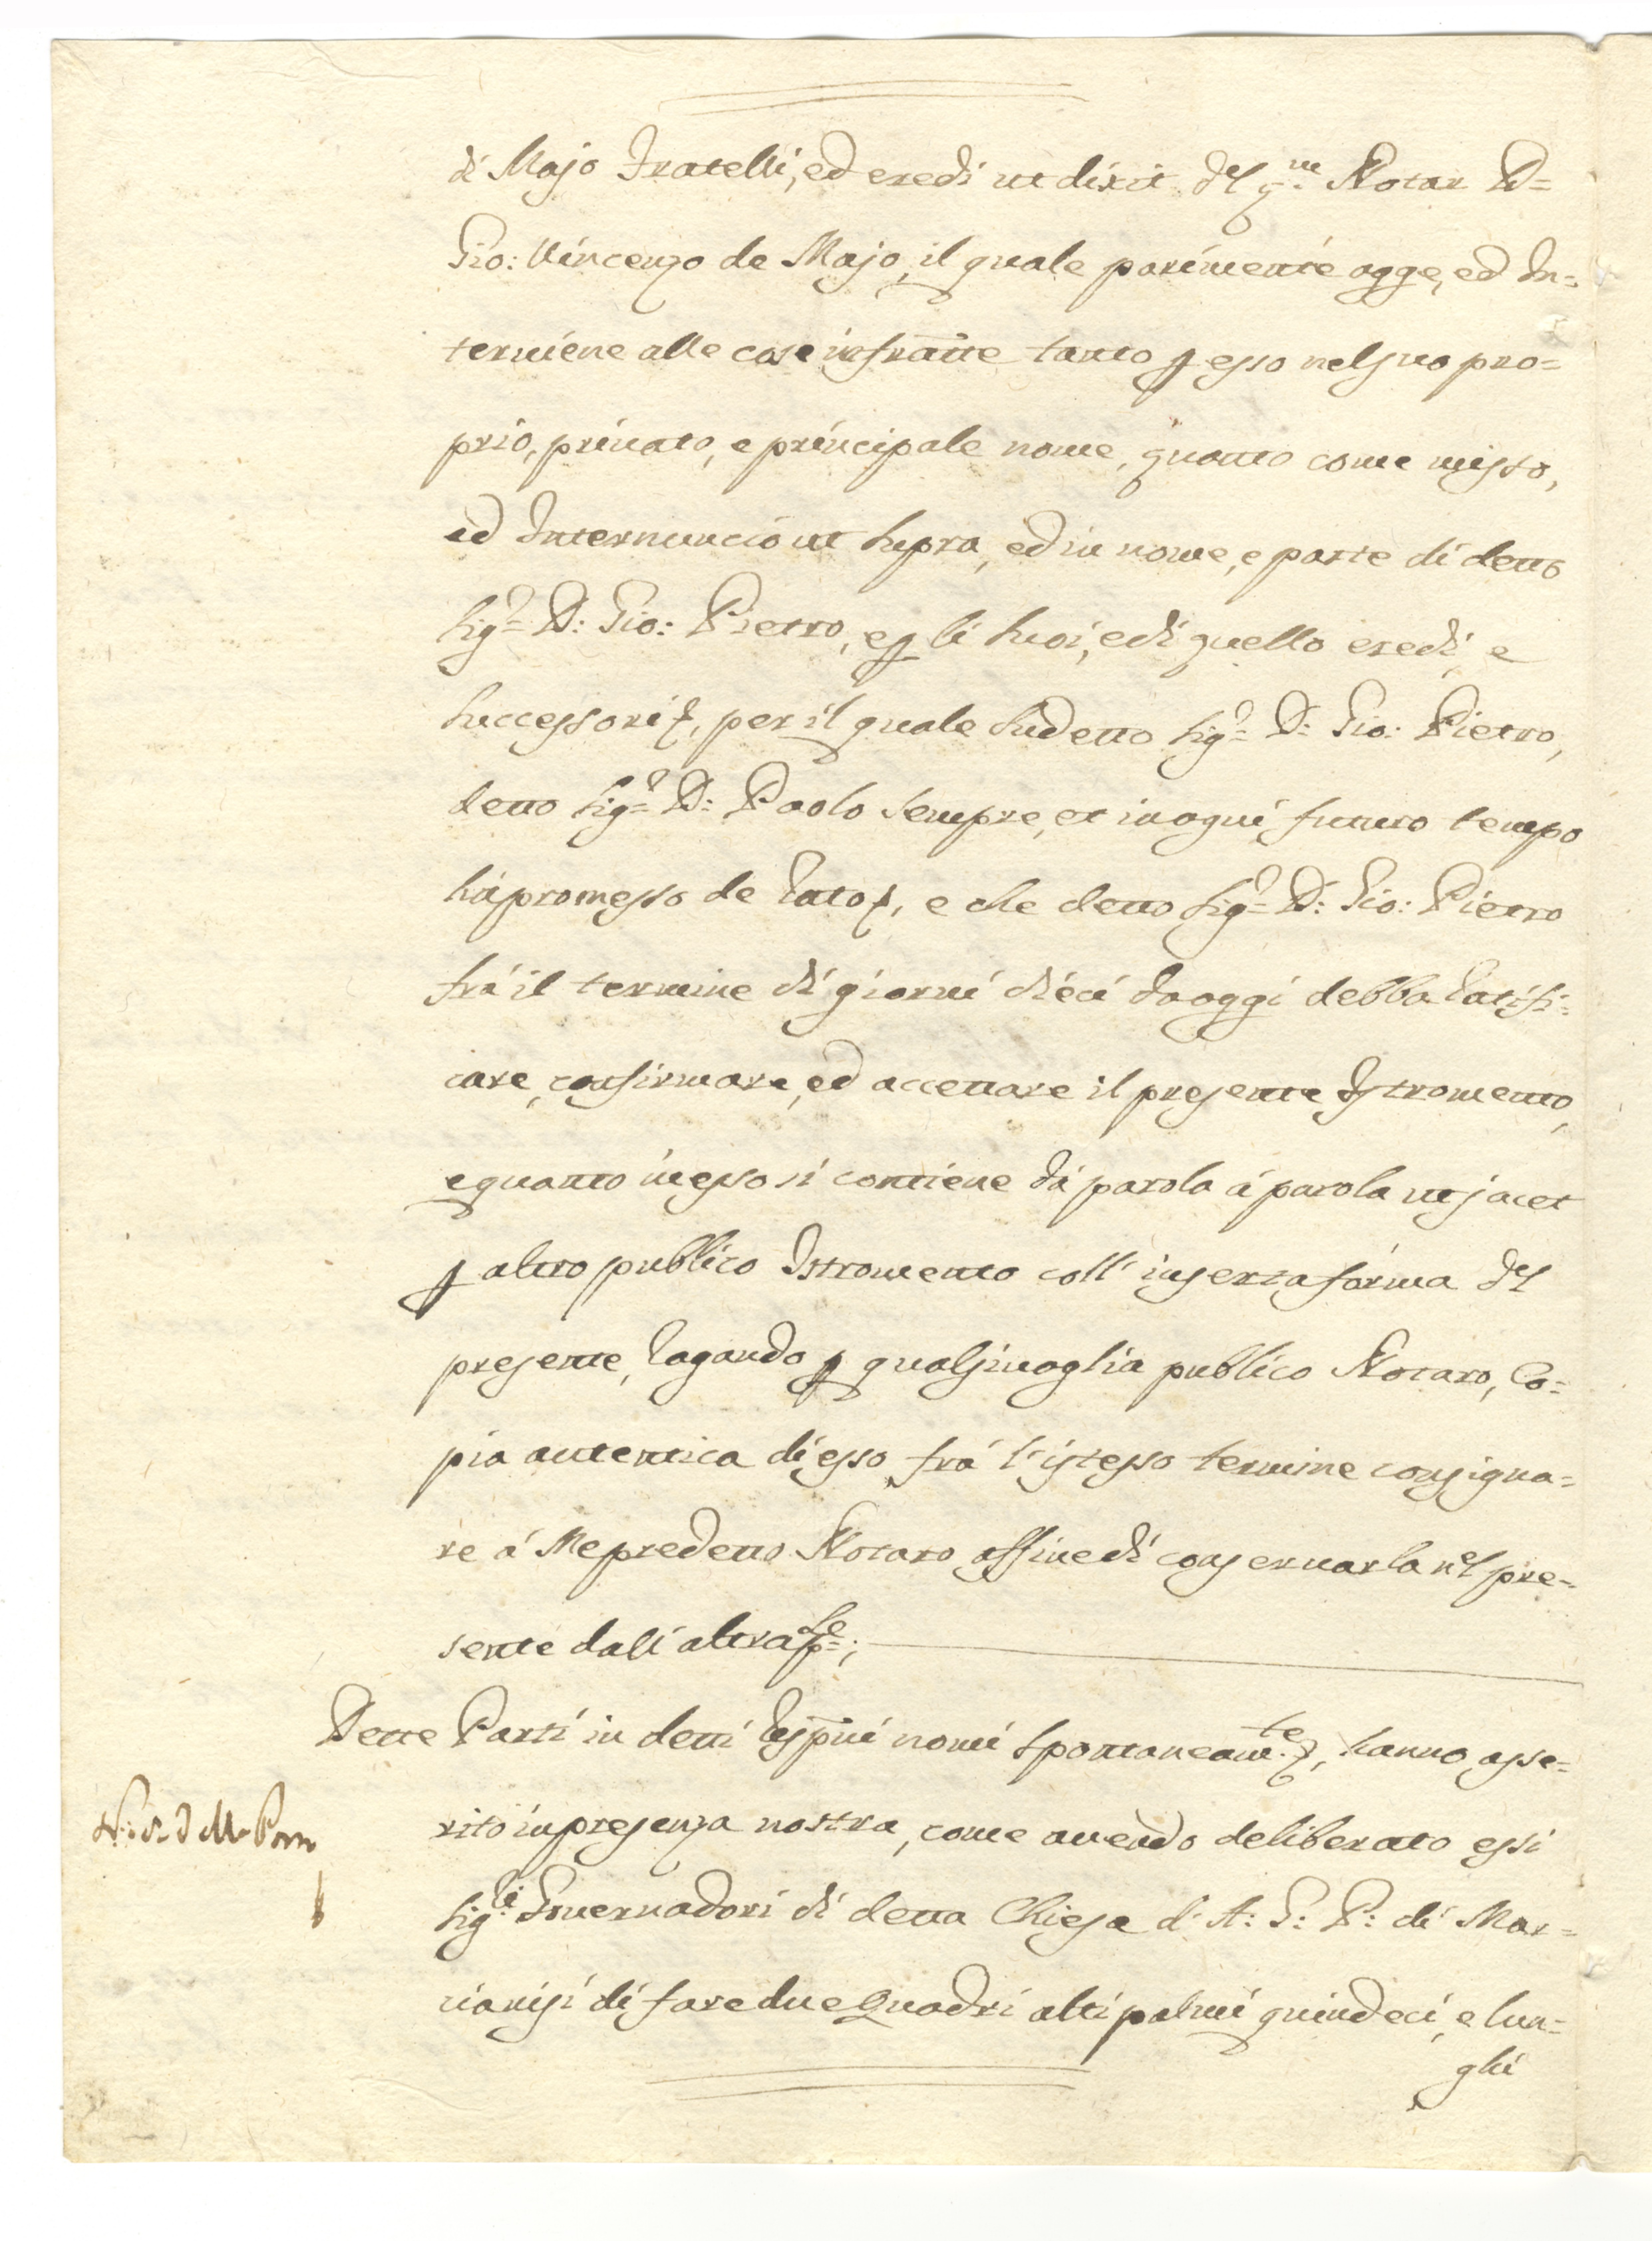 di Majo Fratelli, ed eredi ut dixit del q.m Notar D=
Gio: Vincenzo de Majo, il quale parimente agge, ed In=
terviene alle cose infratte tanto p esso nel suo pro=
prio, privato, e principale nome, quanto come misso,
ed Internuncio ut supra, ed in nome, e parte di detto
Sig.r D: Gio: Pietro, e p li suoi, e di quello eredi, e
successori, per il quale sudetto Sig.r D: Gio: Pietro,
detto Sig.r D: Paolo sempre, et in ogni futuro tempo
hà promesso de rato, e che detto Sig.r D: Gio: Pietro
frà il termine di giorni dieci da oggi debba ratifi=
care, confirmare, ed accettare il presente Istromento,
e quanto in esso si contiene dà parola à parola ut jacet
p altro publico Istromento coll' inserta forma del
presente, rogando p qualsivoglia publico Notaro, Co=
pia autentica di esso frà l'istesso termine consigna=
re à Me predetto Notaro affine di conservarla nel pre=
sente dali altra
Dette Parti in detti respñi nomi spontaneam.te, hanno asse=
rito in presenza nostra, come avendo deliberato essi
Sig.ri Governadori di detta Chiesa d. A: G: P: di Mar=
cianisi di fare due Quadri alti palmi quindeci, e lun=
ghi